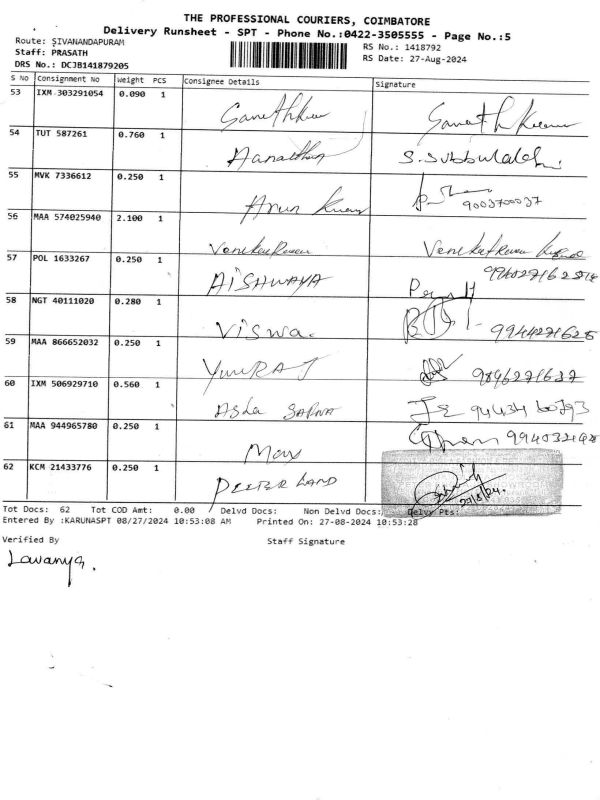 THE PROFESSIONAL COURIERS, COIMBATORE
Delivery Runsheet - SPT - Phone No.:0422-3505555 - Page No.:5
Route: SIVANANDAPURAM
Staff: PRASATH
DRS No.: DCJB141879205
RS No.: 1418792
RS Date: 27-Aug-2024
S No Consignment No Weight PCS Consignee Details Signature
53 IXM 303291054 0.090 1
54 TUT 587261 0.760 1 S. Subbulakshmi
55 MVK 7336612 0.250 1 Arun Kumar 9003700037
56 MAA 574025940 2.100 1 Venkatraman Venkatraman
57 POL 1633267 0.250 1 AISHWAYA
58 NGT 40111020 0.280 1 Viswa. 9944271625
59 MAA 866652032 0.250 1 YuvRAJ 9896271637
60 IXM 506929710 0.560 1 Asha 94434 60793
61 MAA 944965780 0.250 1
62 KCM 21433776 0.250 1 PEETER LAND
Tot Docs: 62 Tot COD Amt: 0.00 Delvd Docs: Non Delvd Docs: Delvy Pts:
Entered By :KARUNASPT 08/27/2024 10:53:08 AM Printed On: 27-08-2024 10:53:28
Verified By Staff Signature
Lavanya.